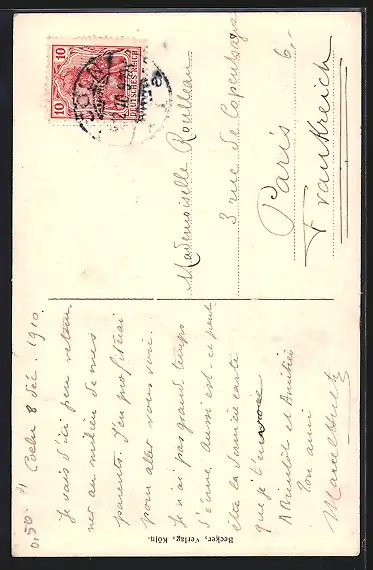 10 10
DEUTSCHES REICH
CÖLN
Mademoiselle Roulleau
3 rue de Copenhague
Paris 8e
Frankreich
Coeln 8 Déc. 1910.
Je vais d'ici peu retour-
ner au milieu de mes
parents. J'en profiterai
pour aller vous voir.
Je n'ai pas grand temps
d'écrire. Aussi est-ce peut
être la dernière carte
que je t'envoie
A Bientôt et Amitiés
Ton ami
Marcel
Becker, Verlag, Köln.
0.50